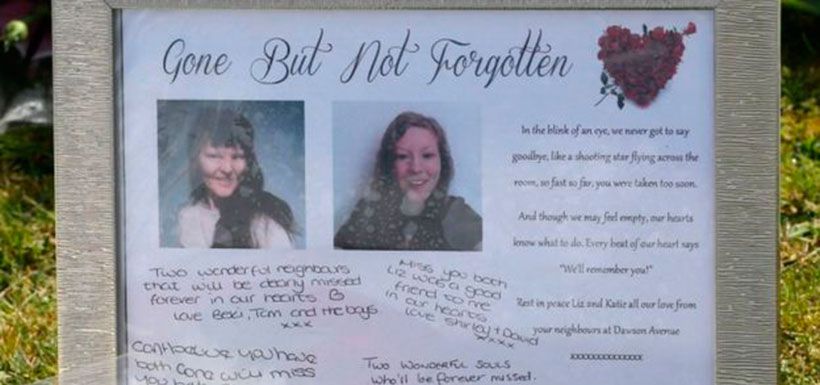 Gone But Not Forgotten
In the blink of an eye, we never got to say
goodbye, like a shooting star flying across the
room, so fast so far, you were taken too soon.
And though we may feel empty, our hearts
know what to do. Every beat of our heart says
"We'll remember you!"
Rest in peace Liz and Katie all our love from
your neighbours at Dawson Avenue
xxxxxxxxxxxxxx
Two wonderful neighbours
that will be dearly missed
forever in our hearts
love Beki, Tom and the boys
xxx
Miss you both
Liz was a good
friend to me
in our hearts
love Shirley + David
xxxx
Can't believe you have
both gone will miss
you both
Two wonderful souls
who'll be forever missed.